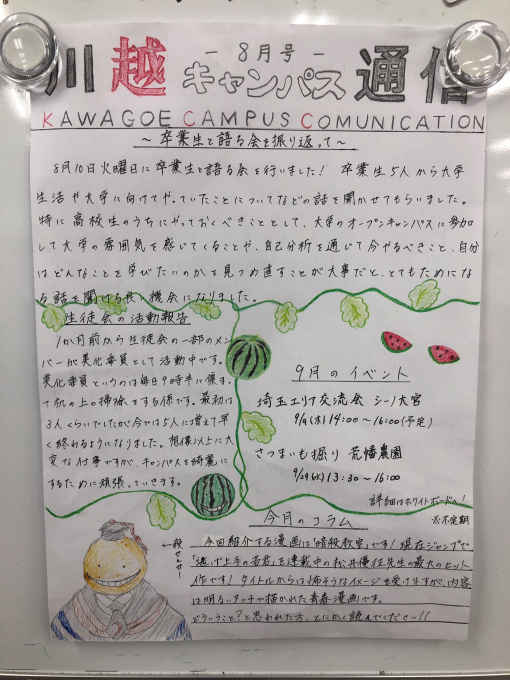 - 8月号 -
川越キャンパス通信
KAWAGOE CAMPUS COMUNICATION
〜卒業生と語る会を振り返って〜
8月10日火曜日に卒業生と語る会を行いました! 卒業生5人から大学
生活や大学に向けてやっていたことについてなどの話を聞かせてもらいました。
特に高校生のうちにやっておくべきこととして、大学のオープンキャンパスに参加
して大学の雰囲気を感じてくることや、自己分析を通じて今やるべきこと、自分
はどんなことを学びたいのかを見つめ直すことが大事だと、とてもためにな
る話を聞ける良い機会になりました。
生徒会の活動報告
1か月前から生徒会の一部のメン
バーが美化委員として活動中です。
美化委員というのは毎日9時半に来
て机の上の掃除をする係です。最初は
3人くらいでしたが今では5人に増えて早
く終わるようになりました。想像以上に大
変な仕事ですが、キャンパスを綺麗に
するために頑張っていきます。
9月のイベント
埼玉エリア交流会 シーノ大宮
9/9(木)14:00〜16:00(予定)
さつまいも掘り 荒幡農園
9/29(水)13:30〜16:00
詳細はホワイトボードへ!
今月のコラム
※不定期
←殺せんせー
今回紹介する漫画は「暗殺教室」です! 現在ジャンプで
「逃げ上手の若君」を連載中の松井優征先生の最大のヒット
作です! タイトルからは怖そうなイメージを受けますが、内容
は明るいタッチで描かれた青春漫画です。
どういうこと?と思われた方、とにかく読んでください!!